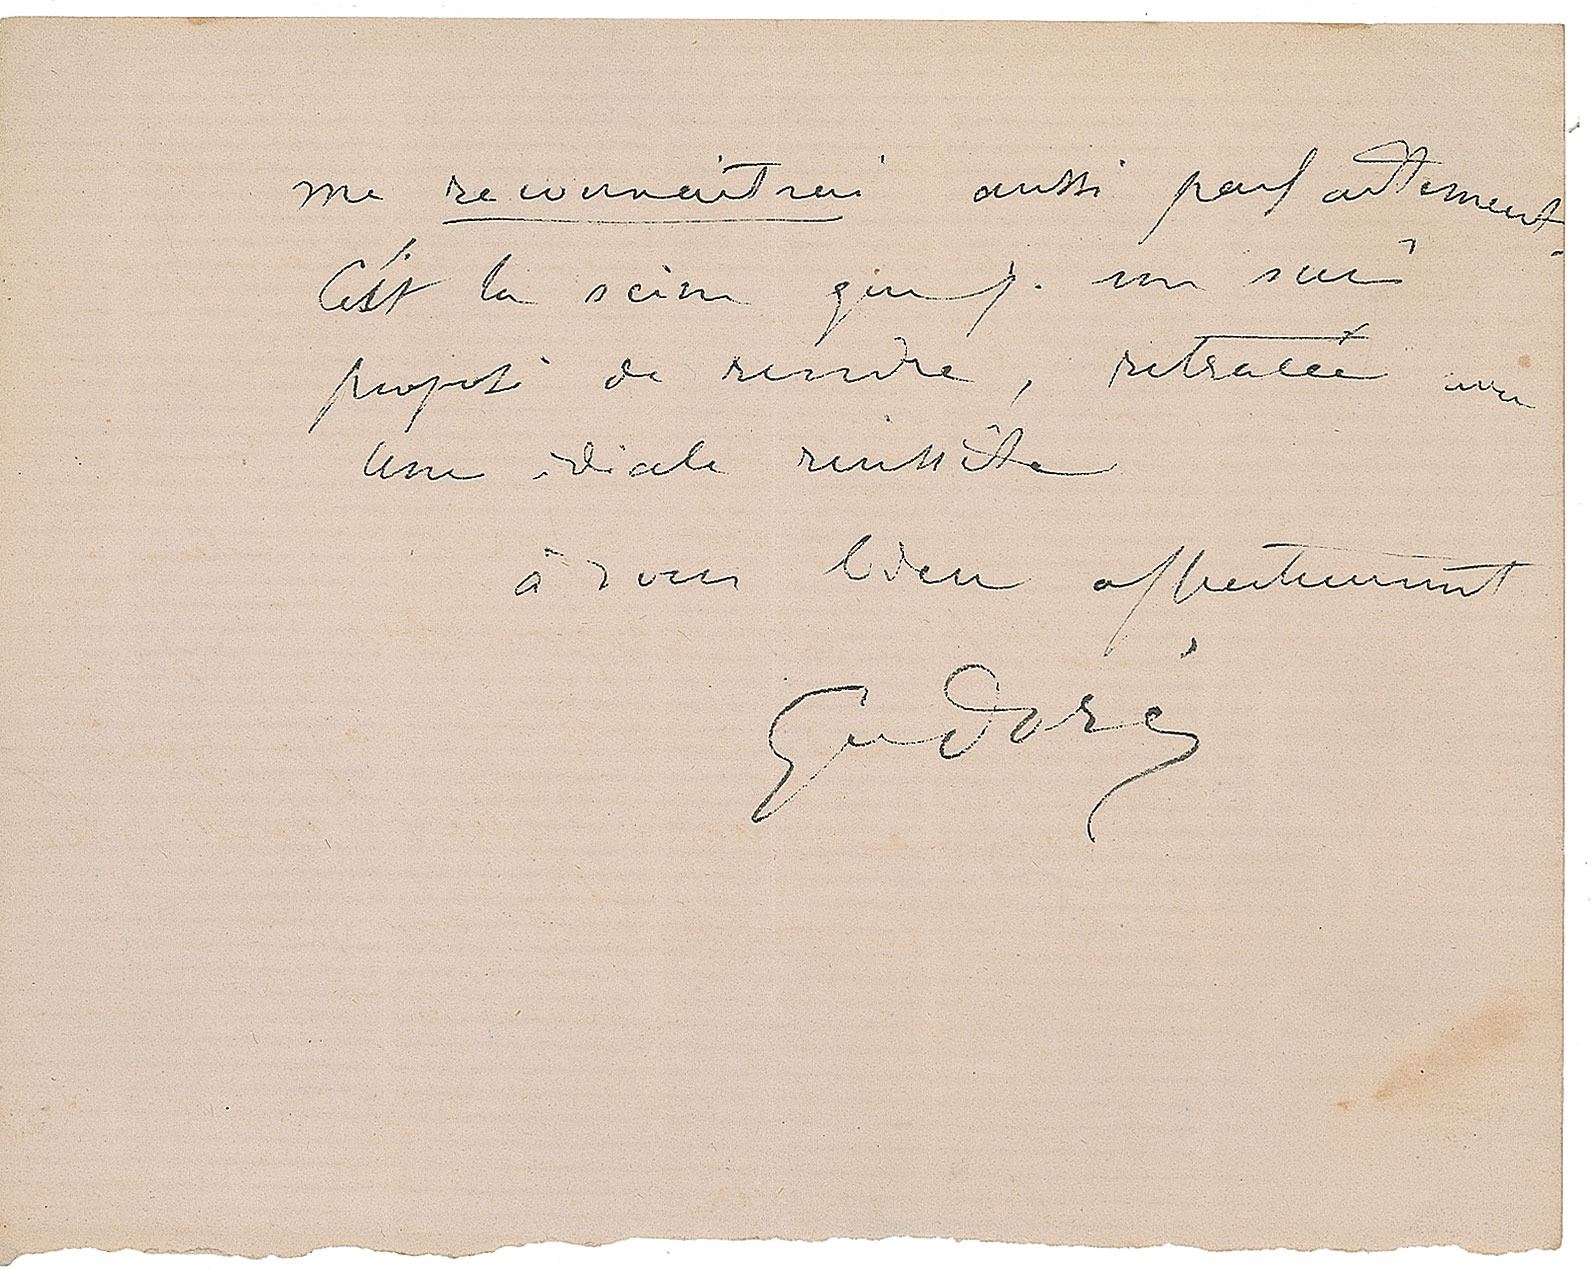 me reconnaitrai aussi parfaitement.
C'est la scène que j. me suis
proposé de rendre, retracée avec
une idéale réussite
à vous bien affectueusement
Gve Doré